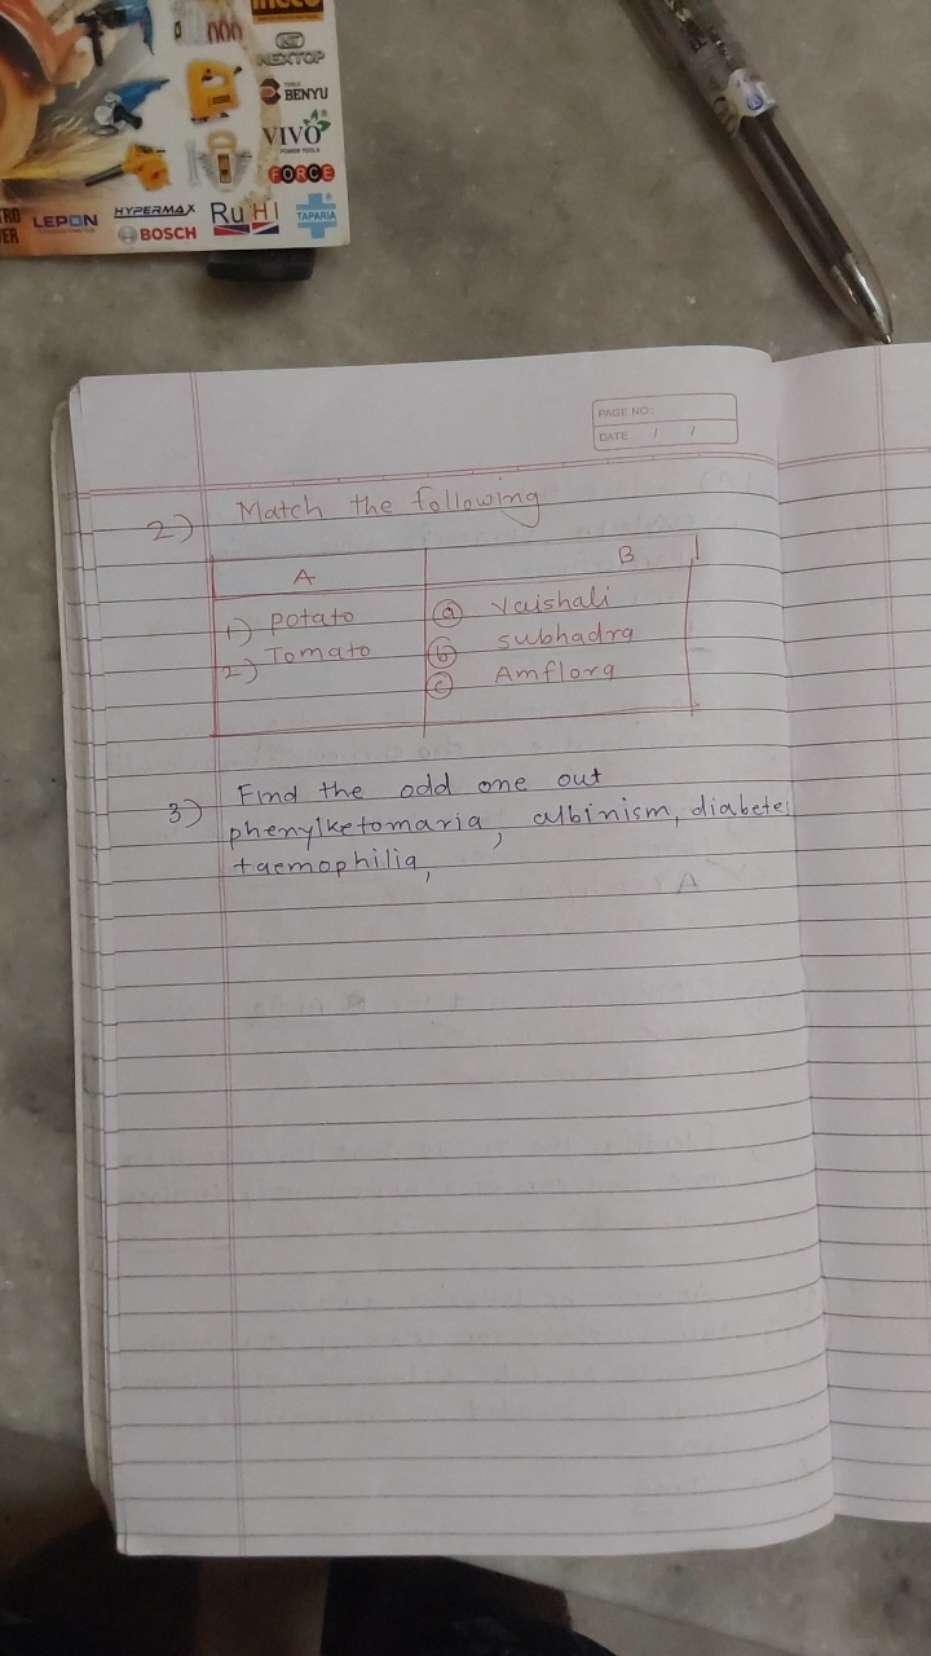 NEXTOP
BENYU
VIVO
POWER TOOLS
FORCE
LEPON
HYPERMAX
BOSCH
RuHI
TAPARIA
PAGE NO.:
DATE / /
2) Match the following
A B
1) potato (a) Vaishali
2) Tomato (b) subhadra
(c) Amflora
3) Find the odd one out
phenylketomaria, albinism, diabetes
taemophilia,
A